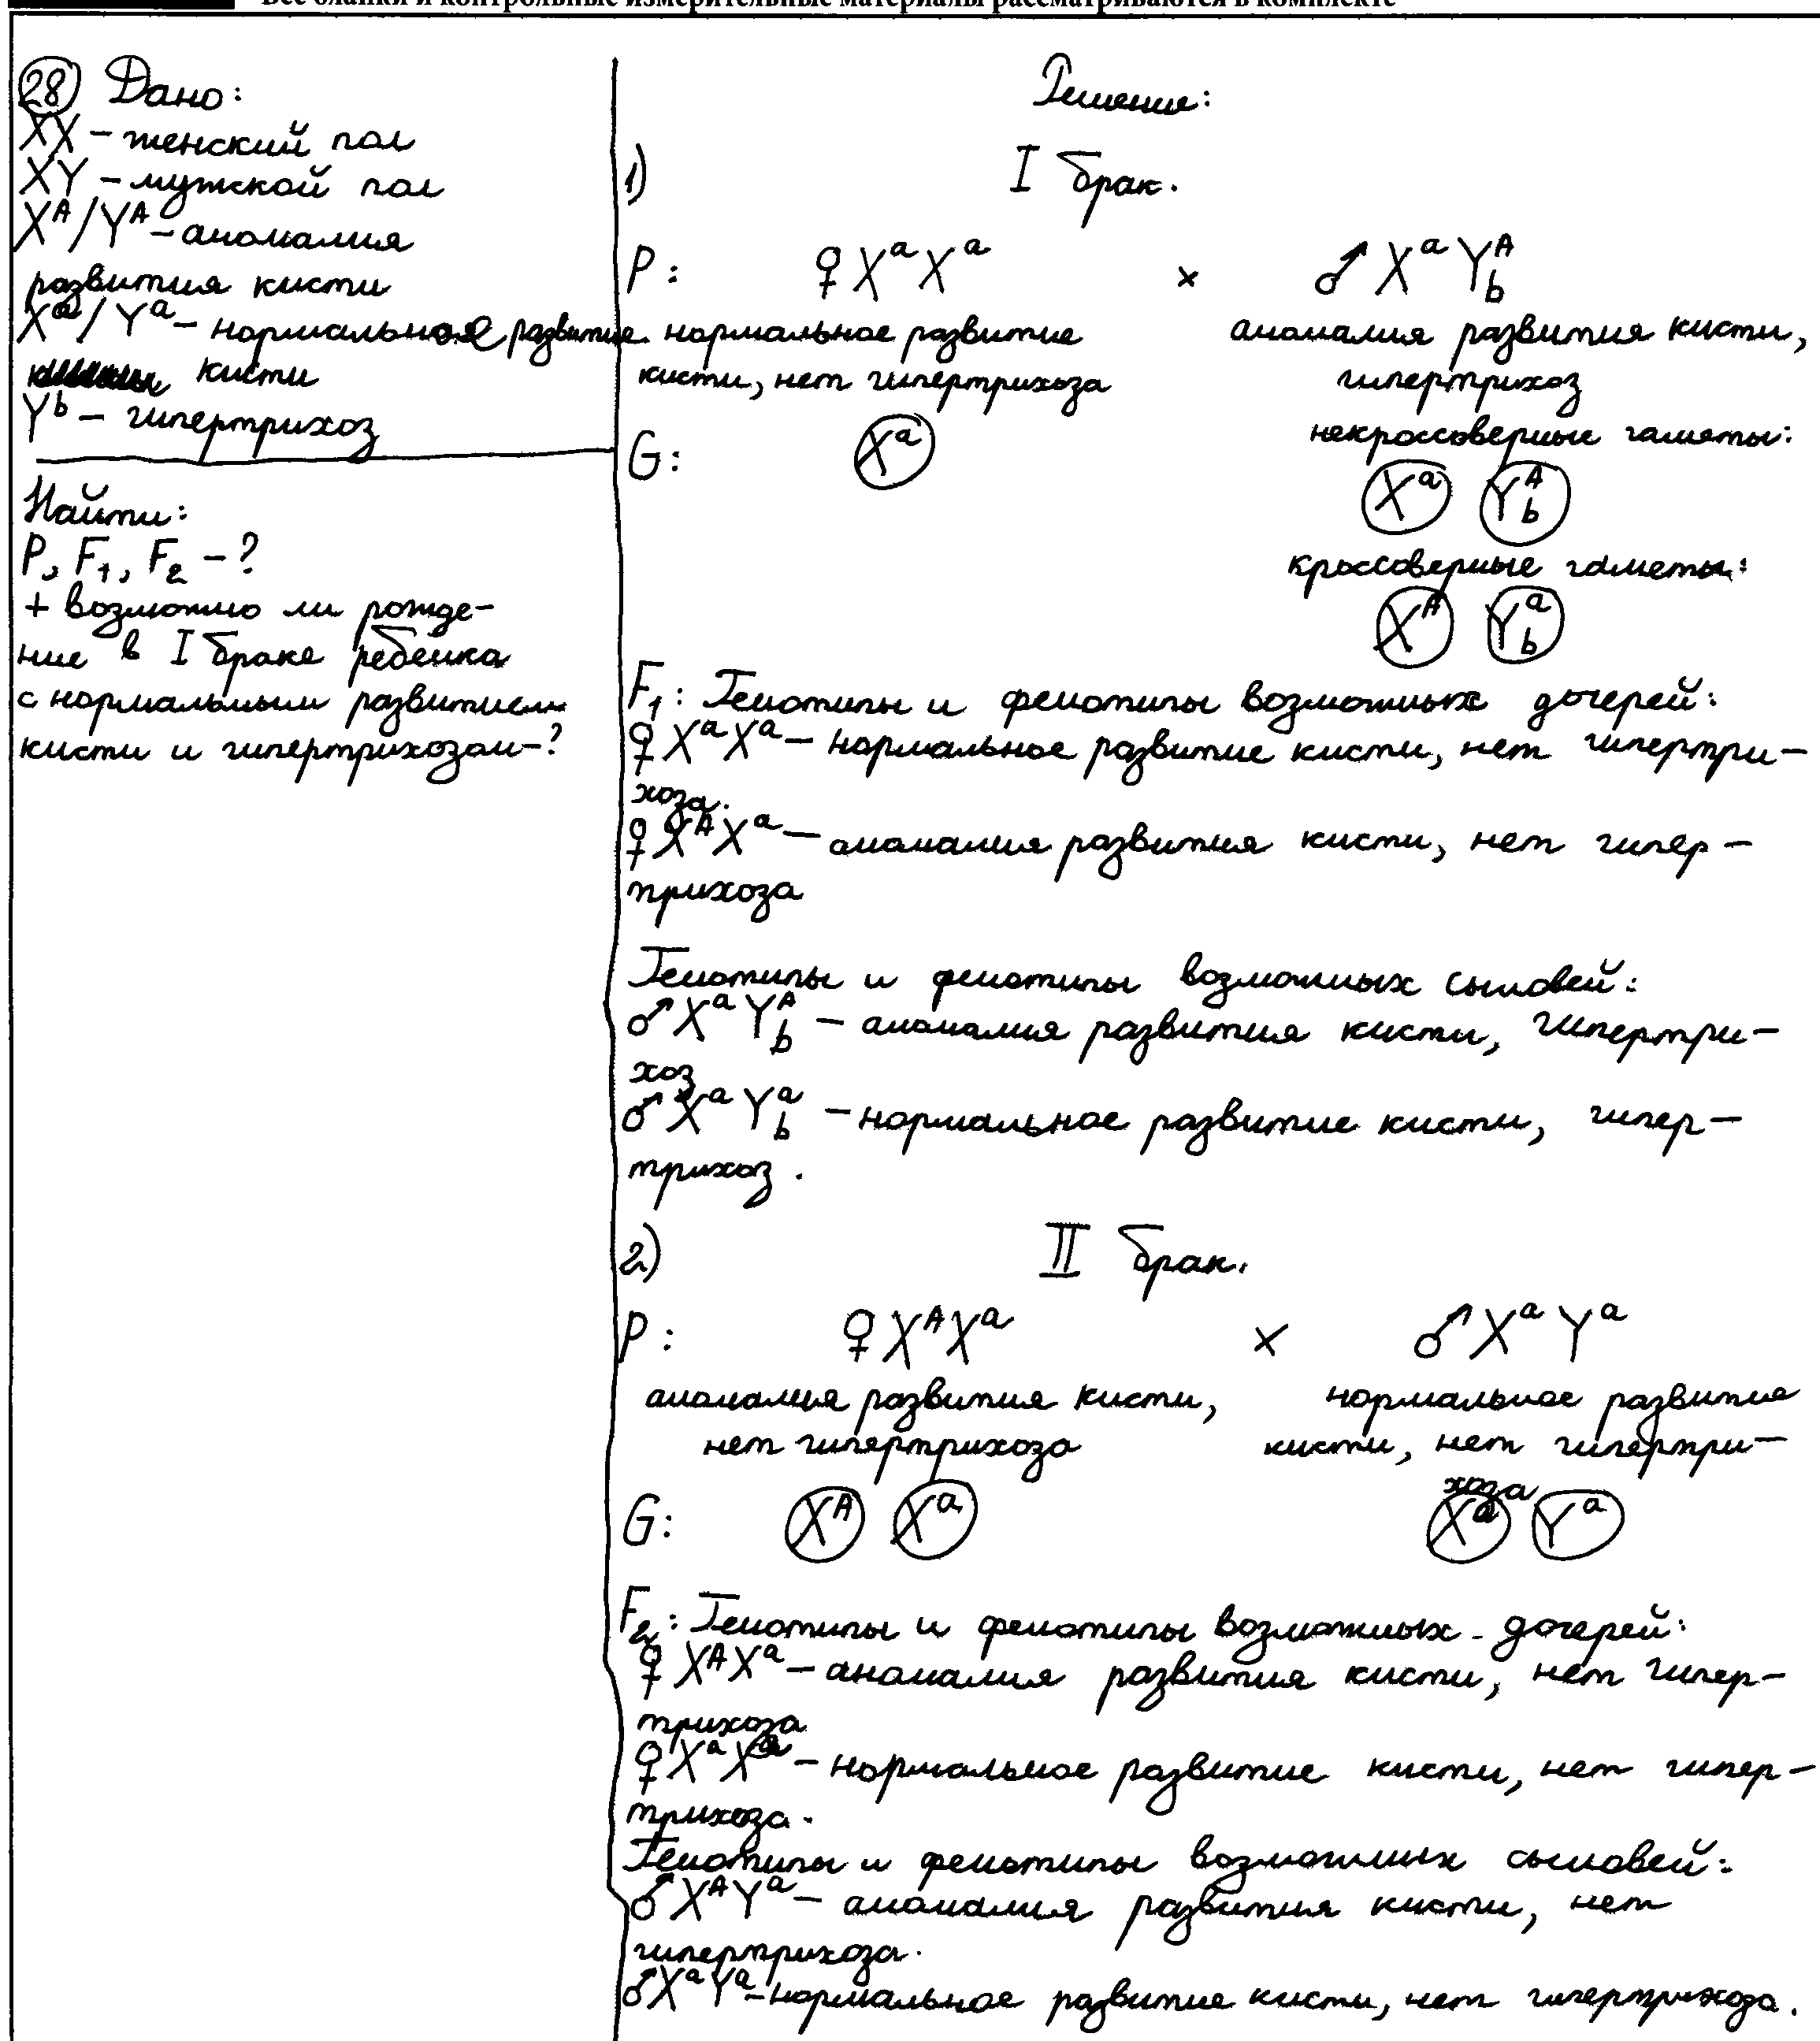 Все бланки и контрольные измерительные материалы рассматриваются в комплекте
28 Дано:
XX – женский пол
XY – мужской пол
X^A/Y^A – аномалия
развития кисти
X^a/Y^a – нормальное развитие
кисти
Y^b – гипертрихоз
Найти:
P, F₁, F₂ – ?
+ возможно ли рожде-
ние в I браке ребенка
с нормальным развитием
кисти и гипертрихозом–?
Решение:
1) I брак.
P: ♀ X^a X^a × ♂ X^a Y^A_b
нормальное развитие аномалия развития кисти,
кисти, нет гипертрихоза гипертрихоз
некроссоверные гаметы:
G: X^a X^a Y^A_b
кроссоверные гаметы:
X^A Y^a_b
F₁: Генотипы и фенотипы возможных дочерей:
♀ X^a X^a – нормальное развитие кисти, нет гипертри-
хоза.
♀ X^A X^a – аномалия развития кисти, нет гипер-
трихоза
Генотипы и фенотипы возможных сыновей:
♂ X^a Y^A_b – аномалия развития кисти, гипертри-
хоз
♂ X^a Y^a_b – нормальное развитие кисти, гипер-
трихоз.
2) II брак.
P: ♀ X^A X^a × ♂ X^a Y^a
аномалия развития кисти, нормальное развитие
нет гипертрихоза кисти, нет гипертри-
хоза
G: X^A X^a X^a Y^a
F₂: Генотипы и фенотипы возможных дочерей:
♀ X^A X^a – аномалия развития кисти, нет гипер-
трихоза
♀ X^a X^a – нормальное развитие кисти, нет гипер-
трихоза.
Генотипы и фенотипы возможных сыновей:
♂ X^A Y^a – аномалия развития кисти, нет
гипертрихоза.
♂ X^a Y^a – нормальное развитие кисти, нет гипертрихоза.